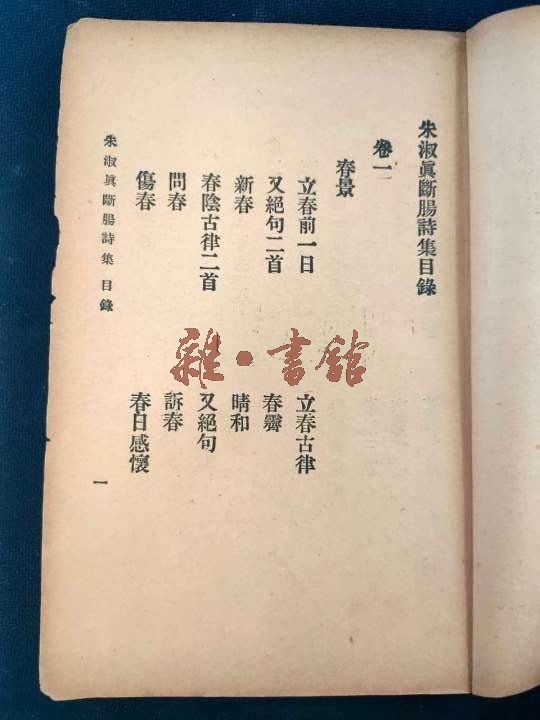 朱淑眞斷腸詩集目錄
卷一
春景
立春前一日
立春古律
又絕句二首
春霽
新春
晴和
春陰古律二首
又絕句
問春
訴春
傷春
春日感懷
朱淑眞斷腸詩集 目錄
一
雜·書館